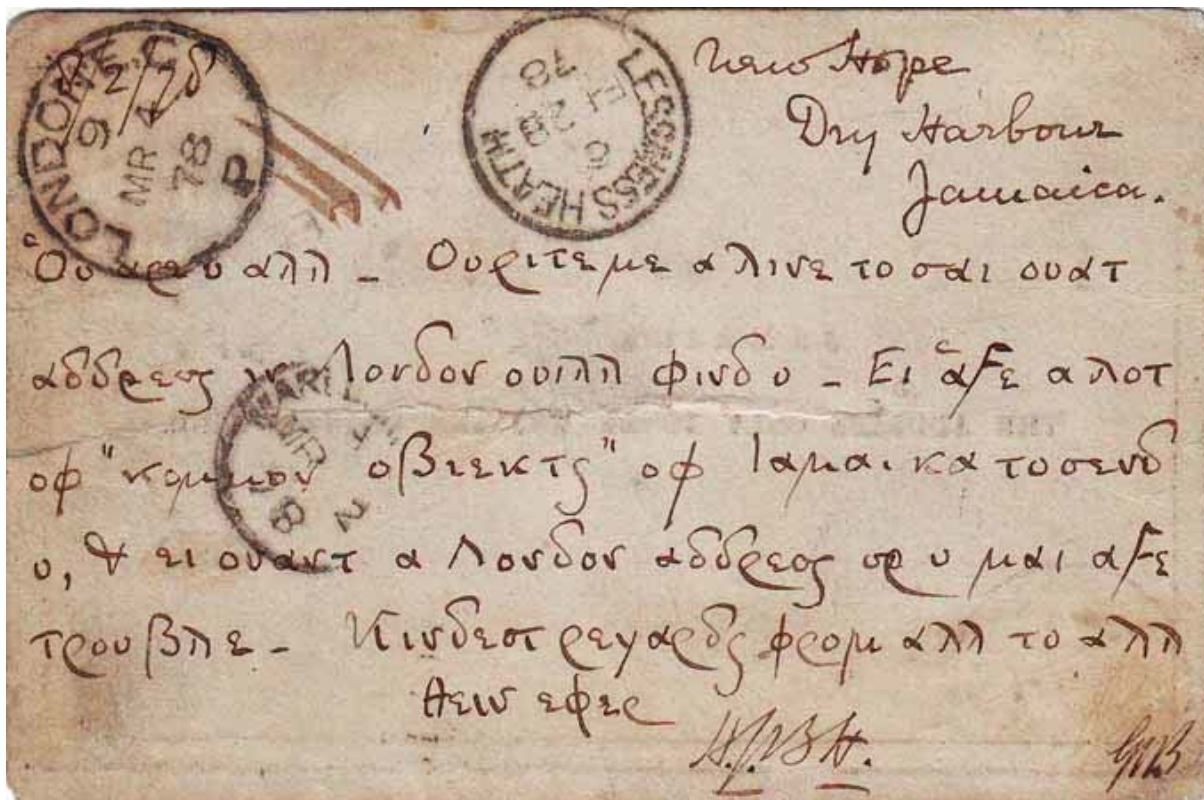 LONDON E.C
9
MR 4
78
P
2/78
LESSNESS HEATH
C
FE 28
78
New Hope
Dry Harbour
Jamaica.
Ὁυ αρε υ αλλ _ Ουριτε με α λινε το σαι ουατ
αδδρεσς ιν Λονδον ουιλλ φινδ υ _ Ει ἁϝε α λοτ
οφ "κομμον οβιεκτς" οφ Ιαμαικα το σενδ
υ, & ει ουαντ α Λονδον αδδρεσς ορ υ μαι αϝε
τρουβλε _ Κινδεστ ρεγαρδς φρομ αλλ το αλλ
θειν εφερ
MR 2
78